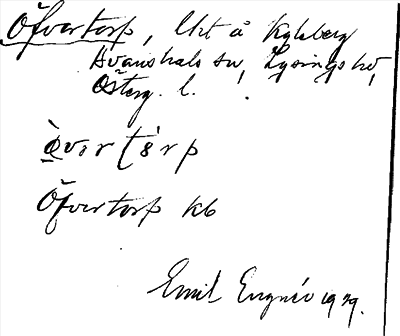 Öfvertorp, lht å Kyleberg
Svanshals sn, Lysings hd,
Österg. l.
Öfvertorp kb
Emil Engnér 1929.